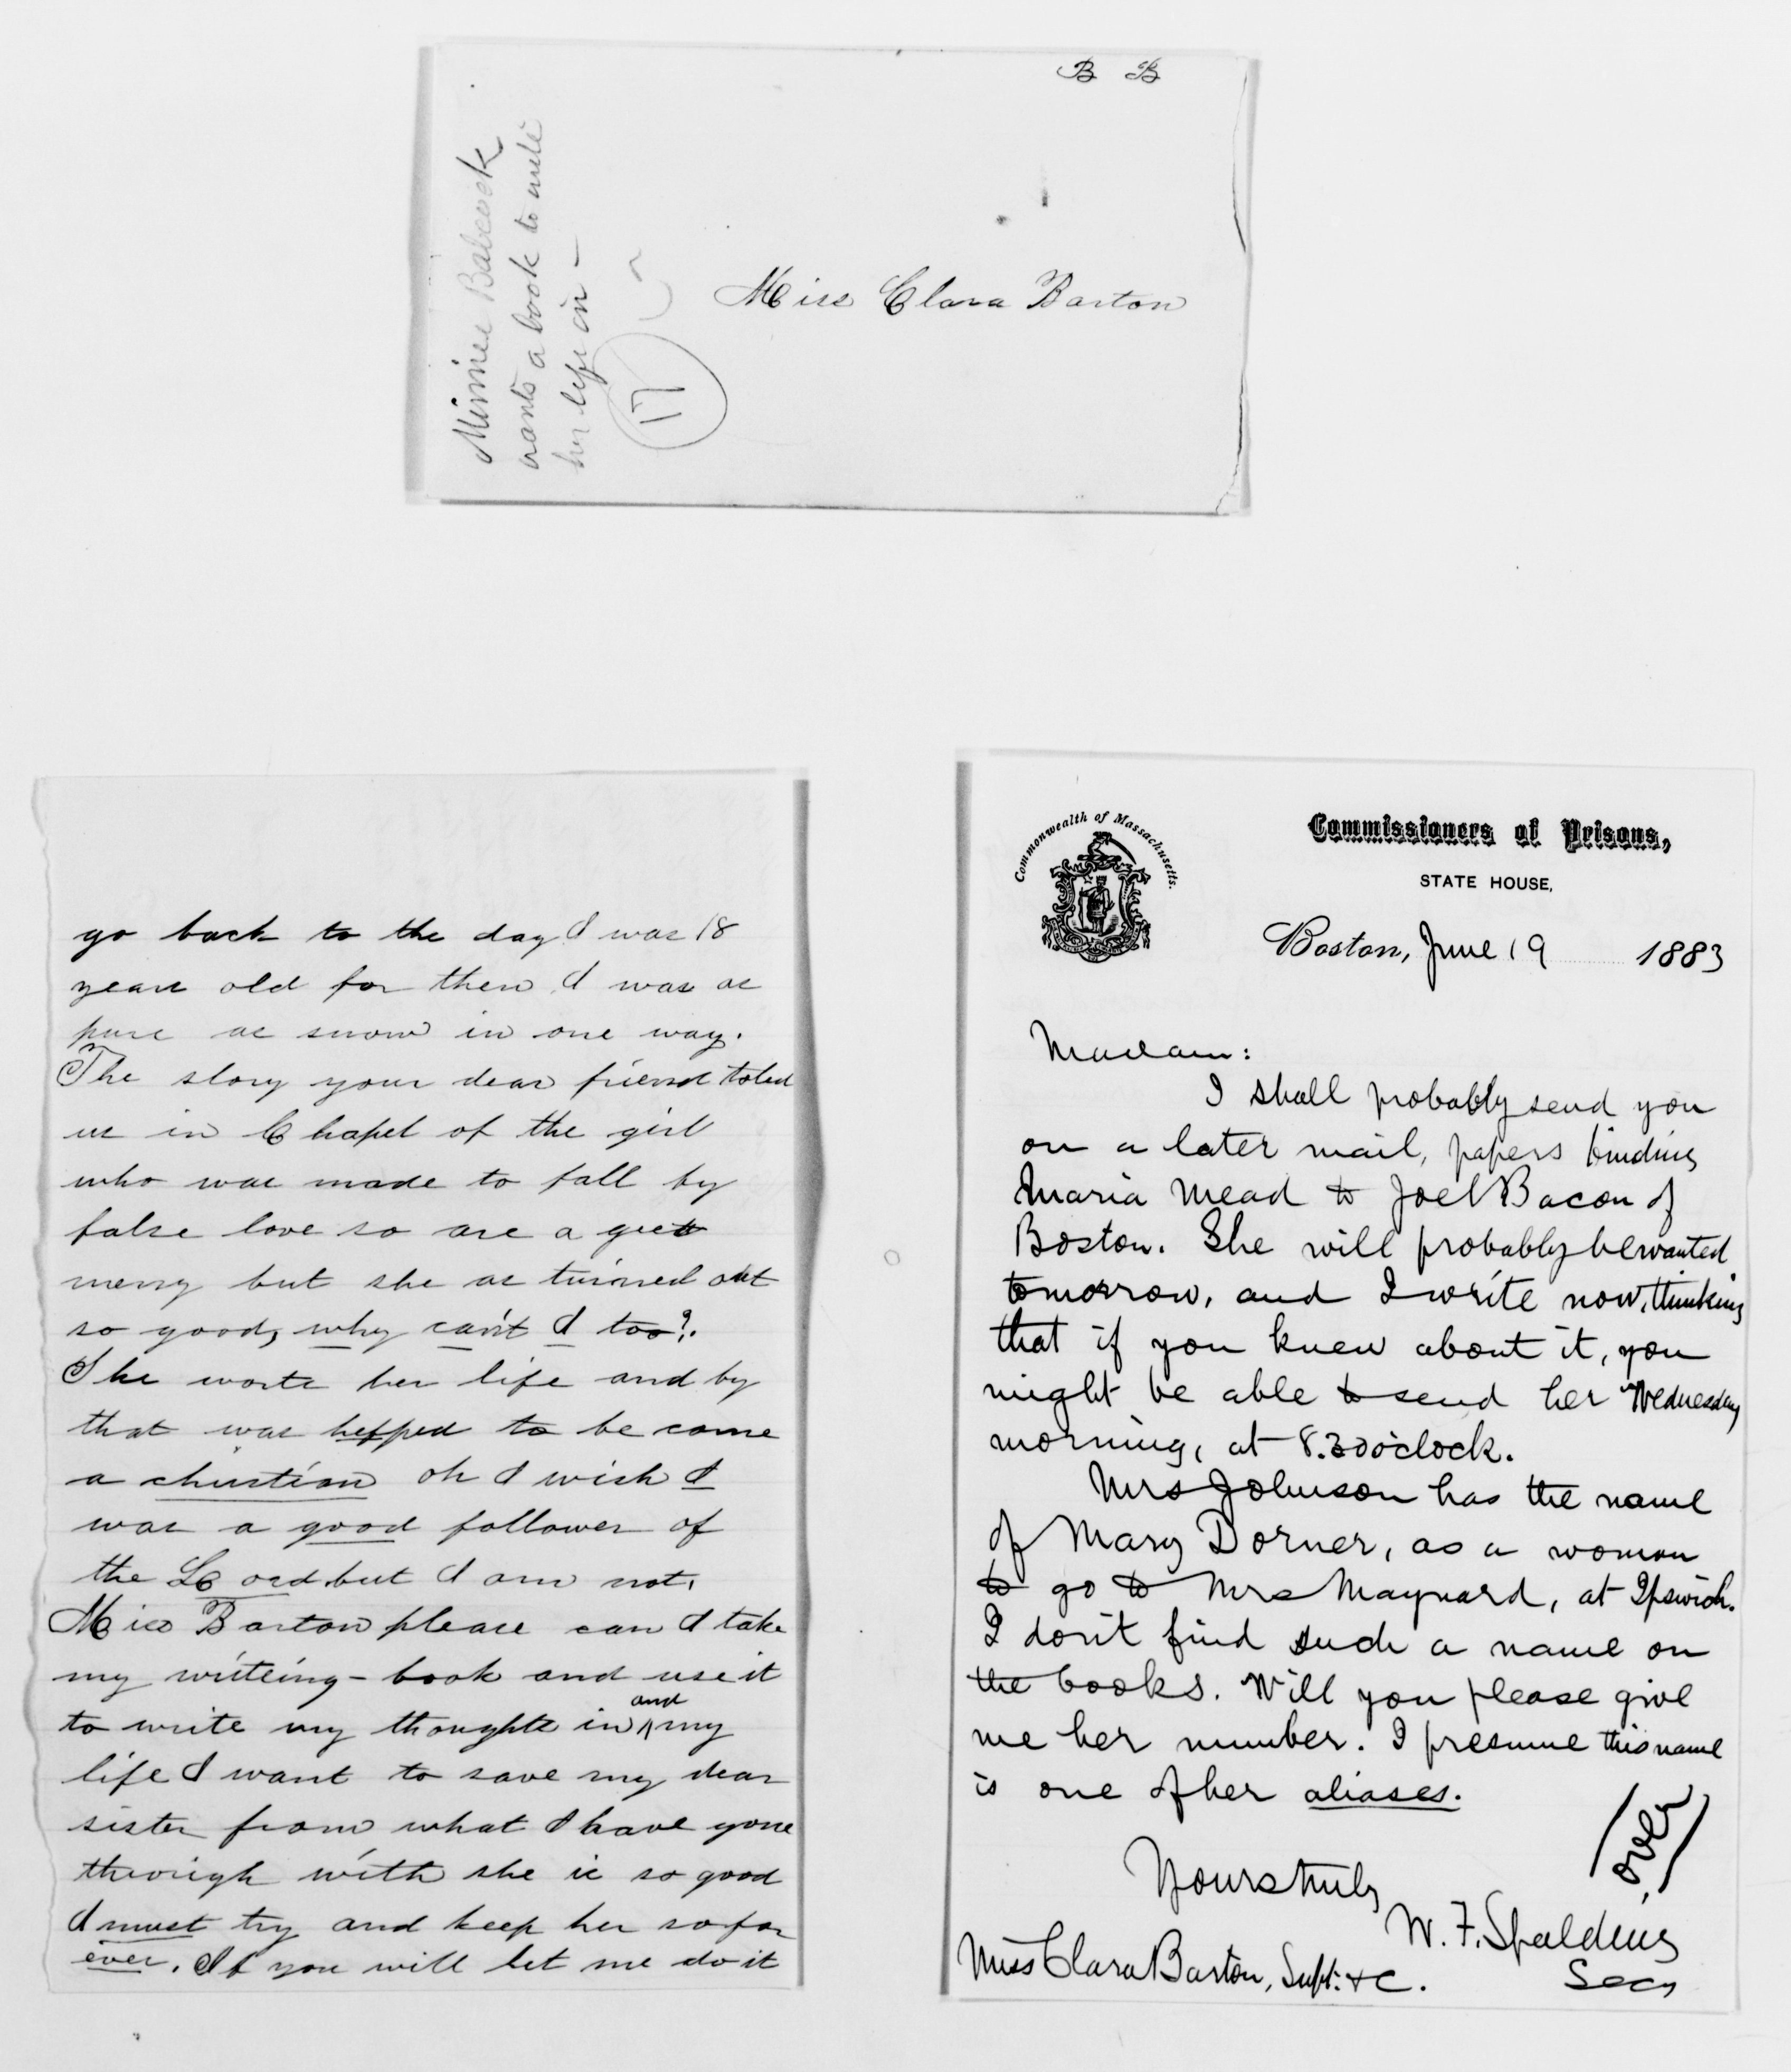 B B
Miss Clara Barton
Minnie Babcock
wants a book to write
her life in –
17
go back to the day I was 18
years old for then I was as
pure as snow in one way.
The story your dear friend toled
us in Chapel of the girl
who was made to fall by
false love so are a greet
meny but she as turned out
so good, why can't I too?.
She worte her life and by
that was hepped to be come
a christian oh I wish I
was a good follower of
the Lord but I am not.
Miss Barton please can I take
my writeing-book and use it
to write my thoughts in and my
life I want to save my dear
sister from what I have gone
through with she is so good
I must try and keep her so for
ever. If you will let me do it
Commonwealth of Massachusetts.
Commissioners of Prisons,
STATE HOUSE,
Boston, June 19 1883
Madam:
I shall probably send you
on a later mail, papers binding
Maria Mead to Joel Bacon of
Boston. She will probably be wanted
tomorrow, and I write now, thinking
that if you knew about it, you
might be able to send her Wednesday
morning, at 8.30 o'clock.
Mrs Johnson has the name
of Mary Dorner, as a woman
to go to Mrs Maynard, at Ipswich.
I don't find such a name on
the books. Will you please give
me her number. I presume this name
is one of her aliases.
(over)
Yours truly
W. F. Spalding
Secy
Miss Clara Barton, Supt. &c.